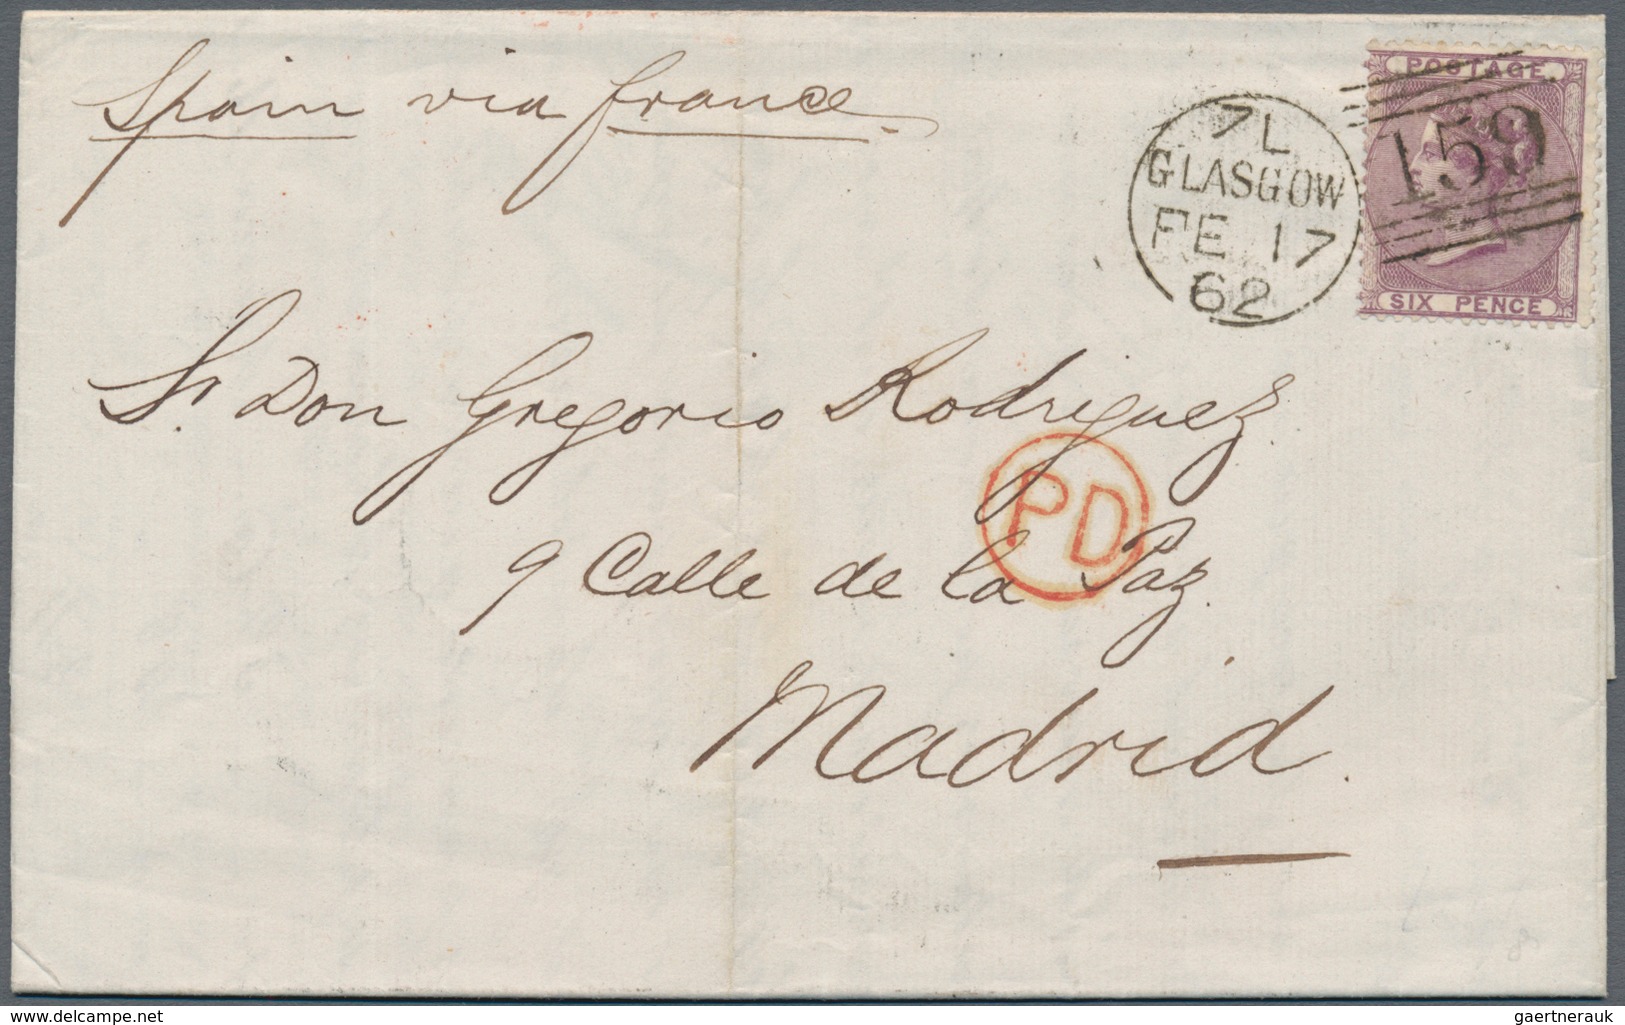 Spain via France.
POSTAGE.
159
SIX PENCE
7 L
GLASGOW
FE 17
62
Sr. Don Gregorio Rodriguez.
PD
9 Calle de la Paz.
Madrid.
www.delcampe.net
gaertnerauk